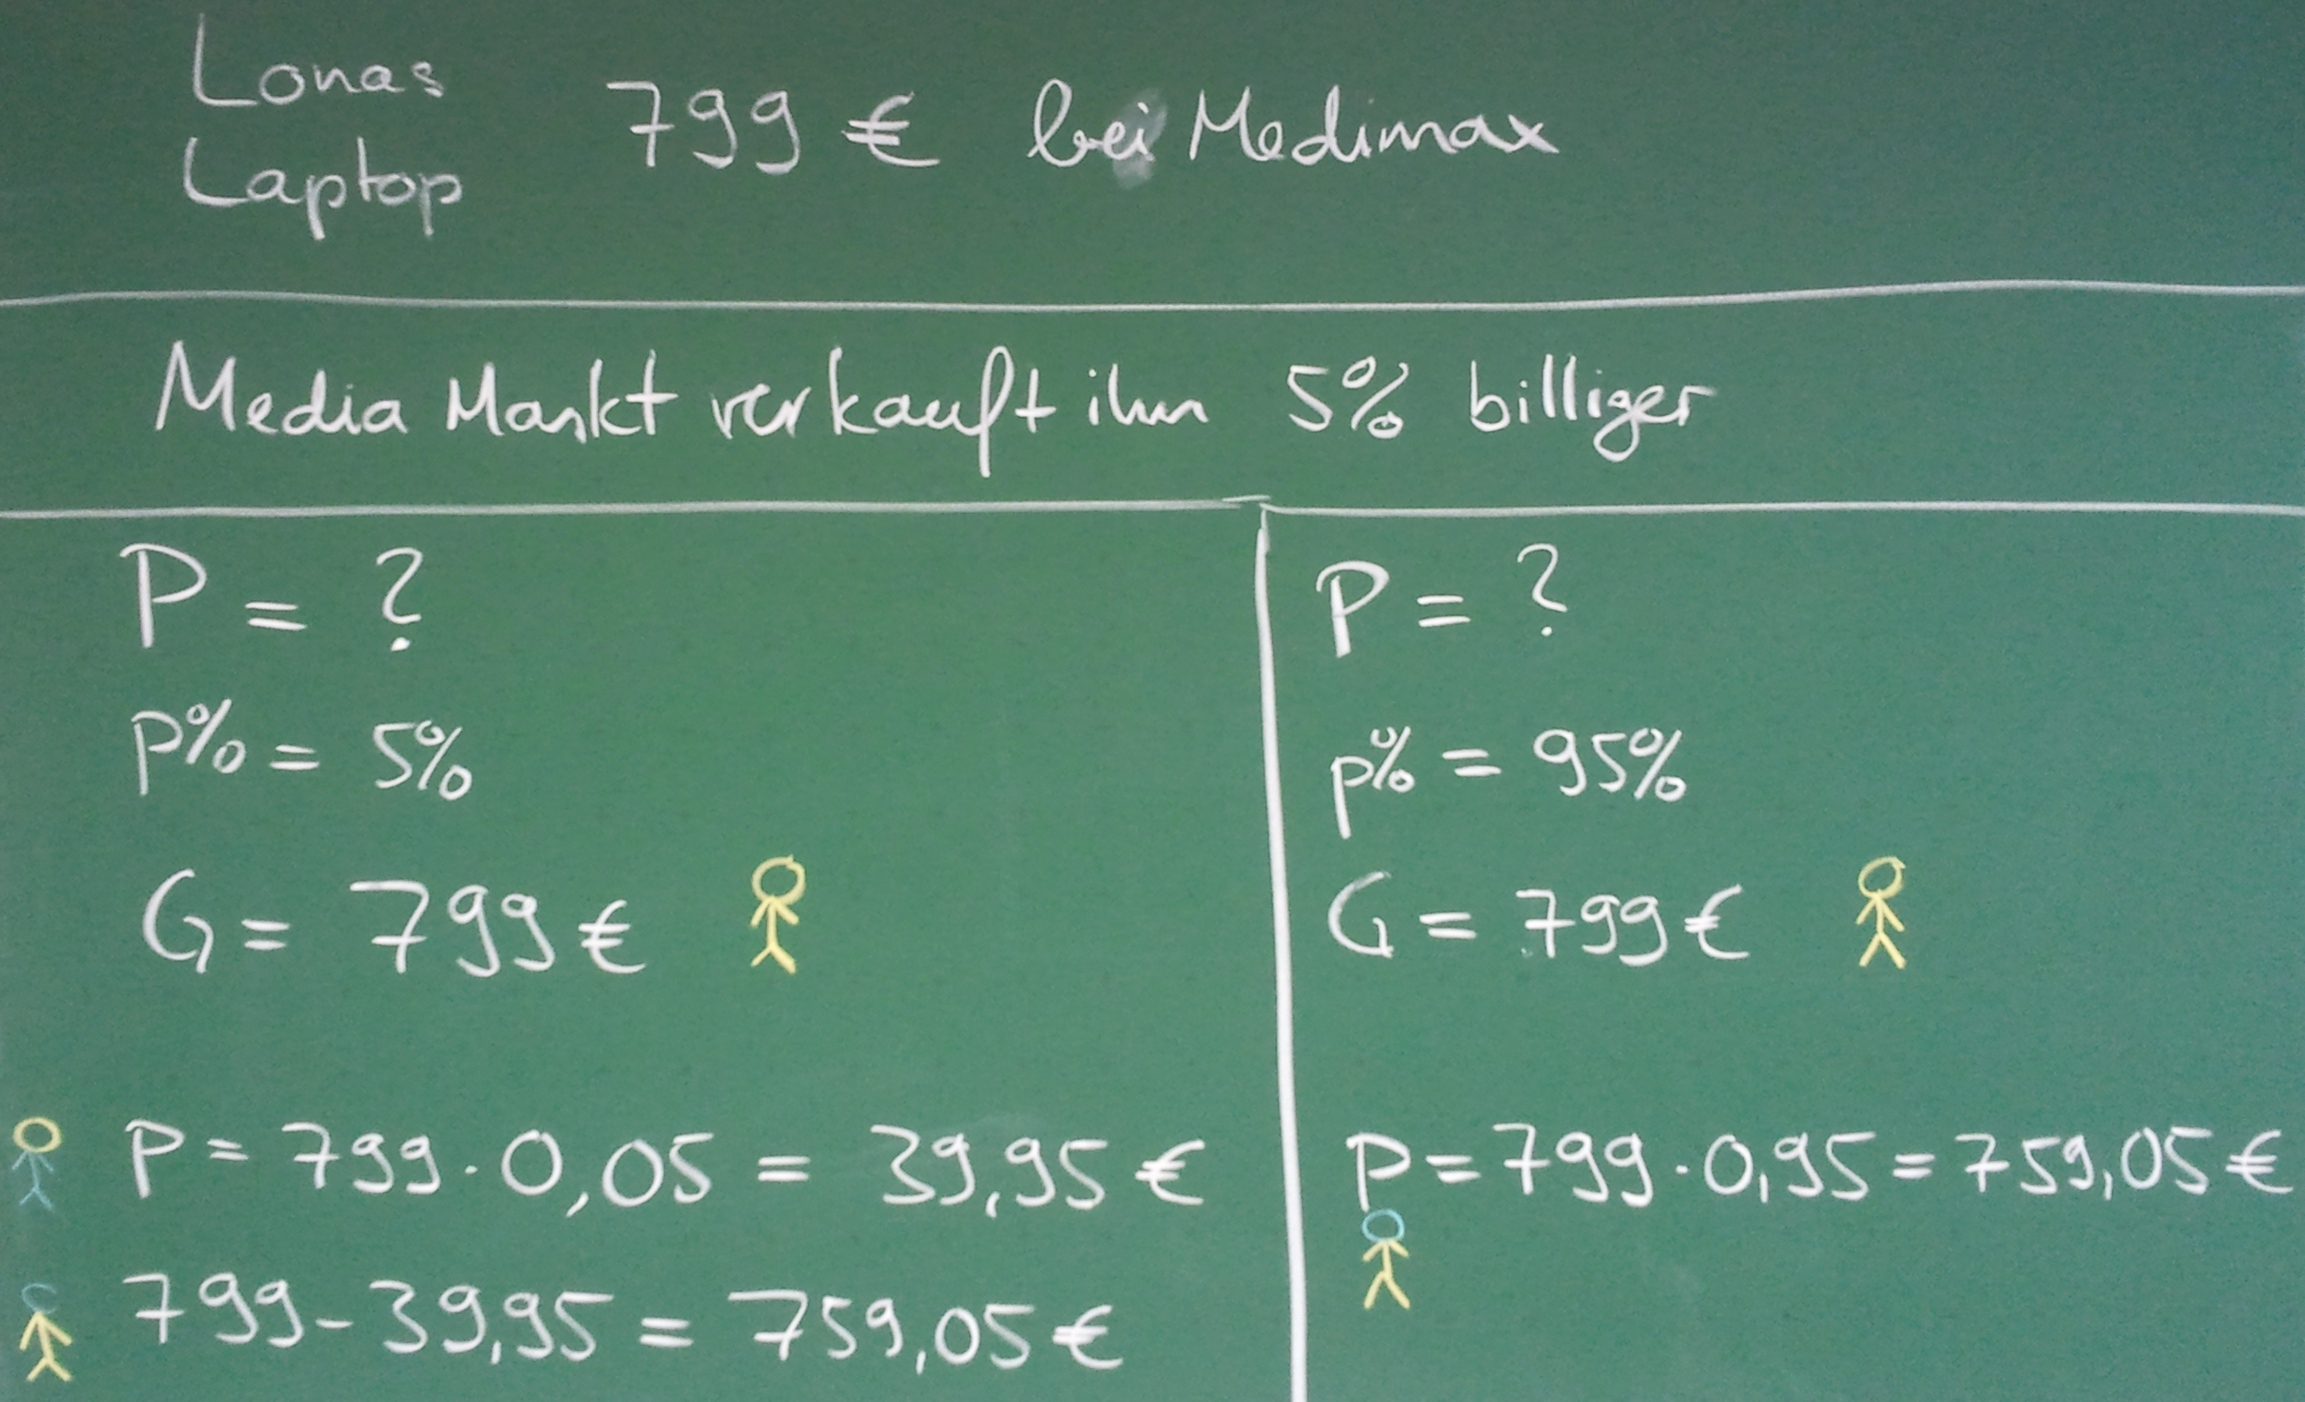 Lonas
Laptop
799 € bei Medimax
Media Markt verkauft ihn 5% billiger
P = ?
p% = 5%
G = 799 €
P = 799 · 0,05 = 39,95 €
799 - 39,95 = 759,05 €
P = ?
p% = 95%
G = 799 €
P = 799 · 0,95 = 759,05 €